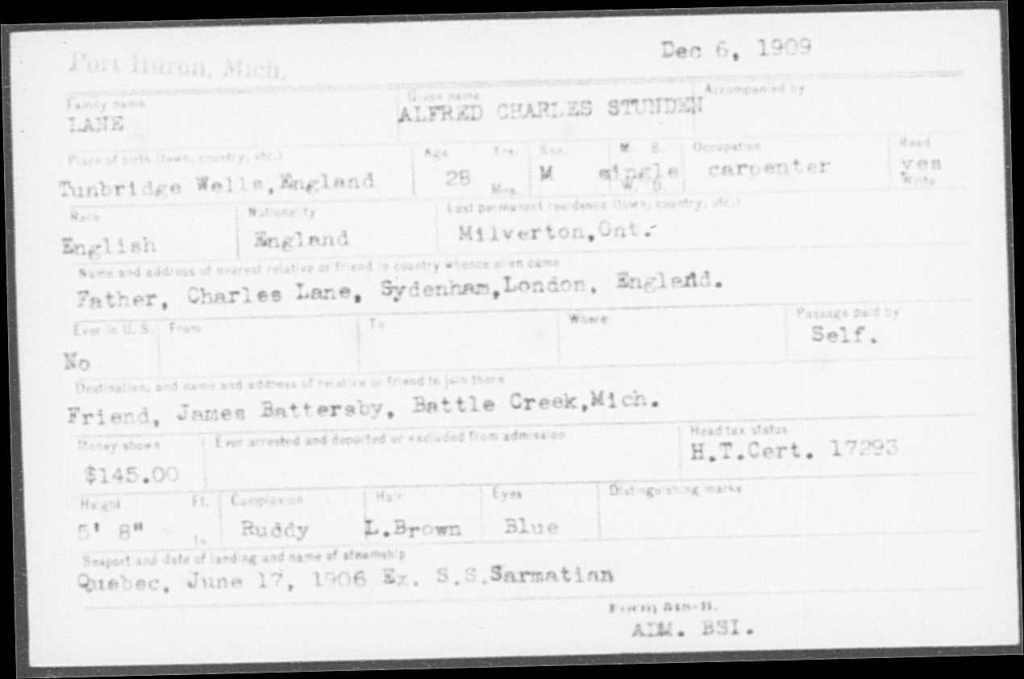 Port Huron, Mich. Dec 6, 1909
Family name Given name Accompanied by
LANE ALFRED CHARLES STUNDEN
Place of birth (town, country, etc.) Age Yrs. Sex M. S. Occupation Read
Tunbridge Wells,England 28 M single carpenter yes
Mos. W. D. Write
Race Nationality Last permanent residence (town, country, etc.)
English England Milverton,Ont.-
Name and address of nearest relative or friend in country whence alien came
Father, Charles Lane, Sydenham,London, England.
Ever in U. S. From To Where Passage paid by
No Self.
Destination, and name and address of relative or friend to join there
Friend, James Battersby, Battle Creek,Mich.
Money shown Ever arrested and deported or excluded from admission Head tax status
$145.00 H.T.Cert. 17293
Height Ft. Complexion Hair Eyes Distinguishing marks
5' 8" In. Ruddy L.Brown Blue
Seaport and date of landing and name of steamship
Quebec, June 17, 1906 Ex. S.S.Sarmatian
Form 548-B.
ADM. BSI.